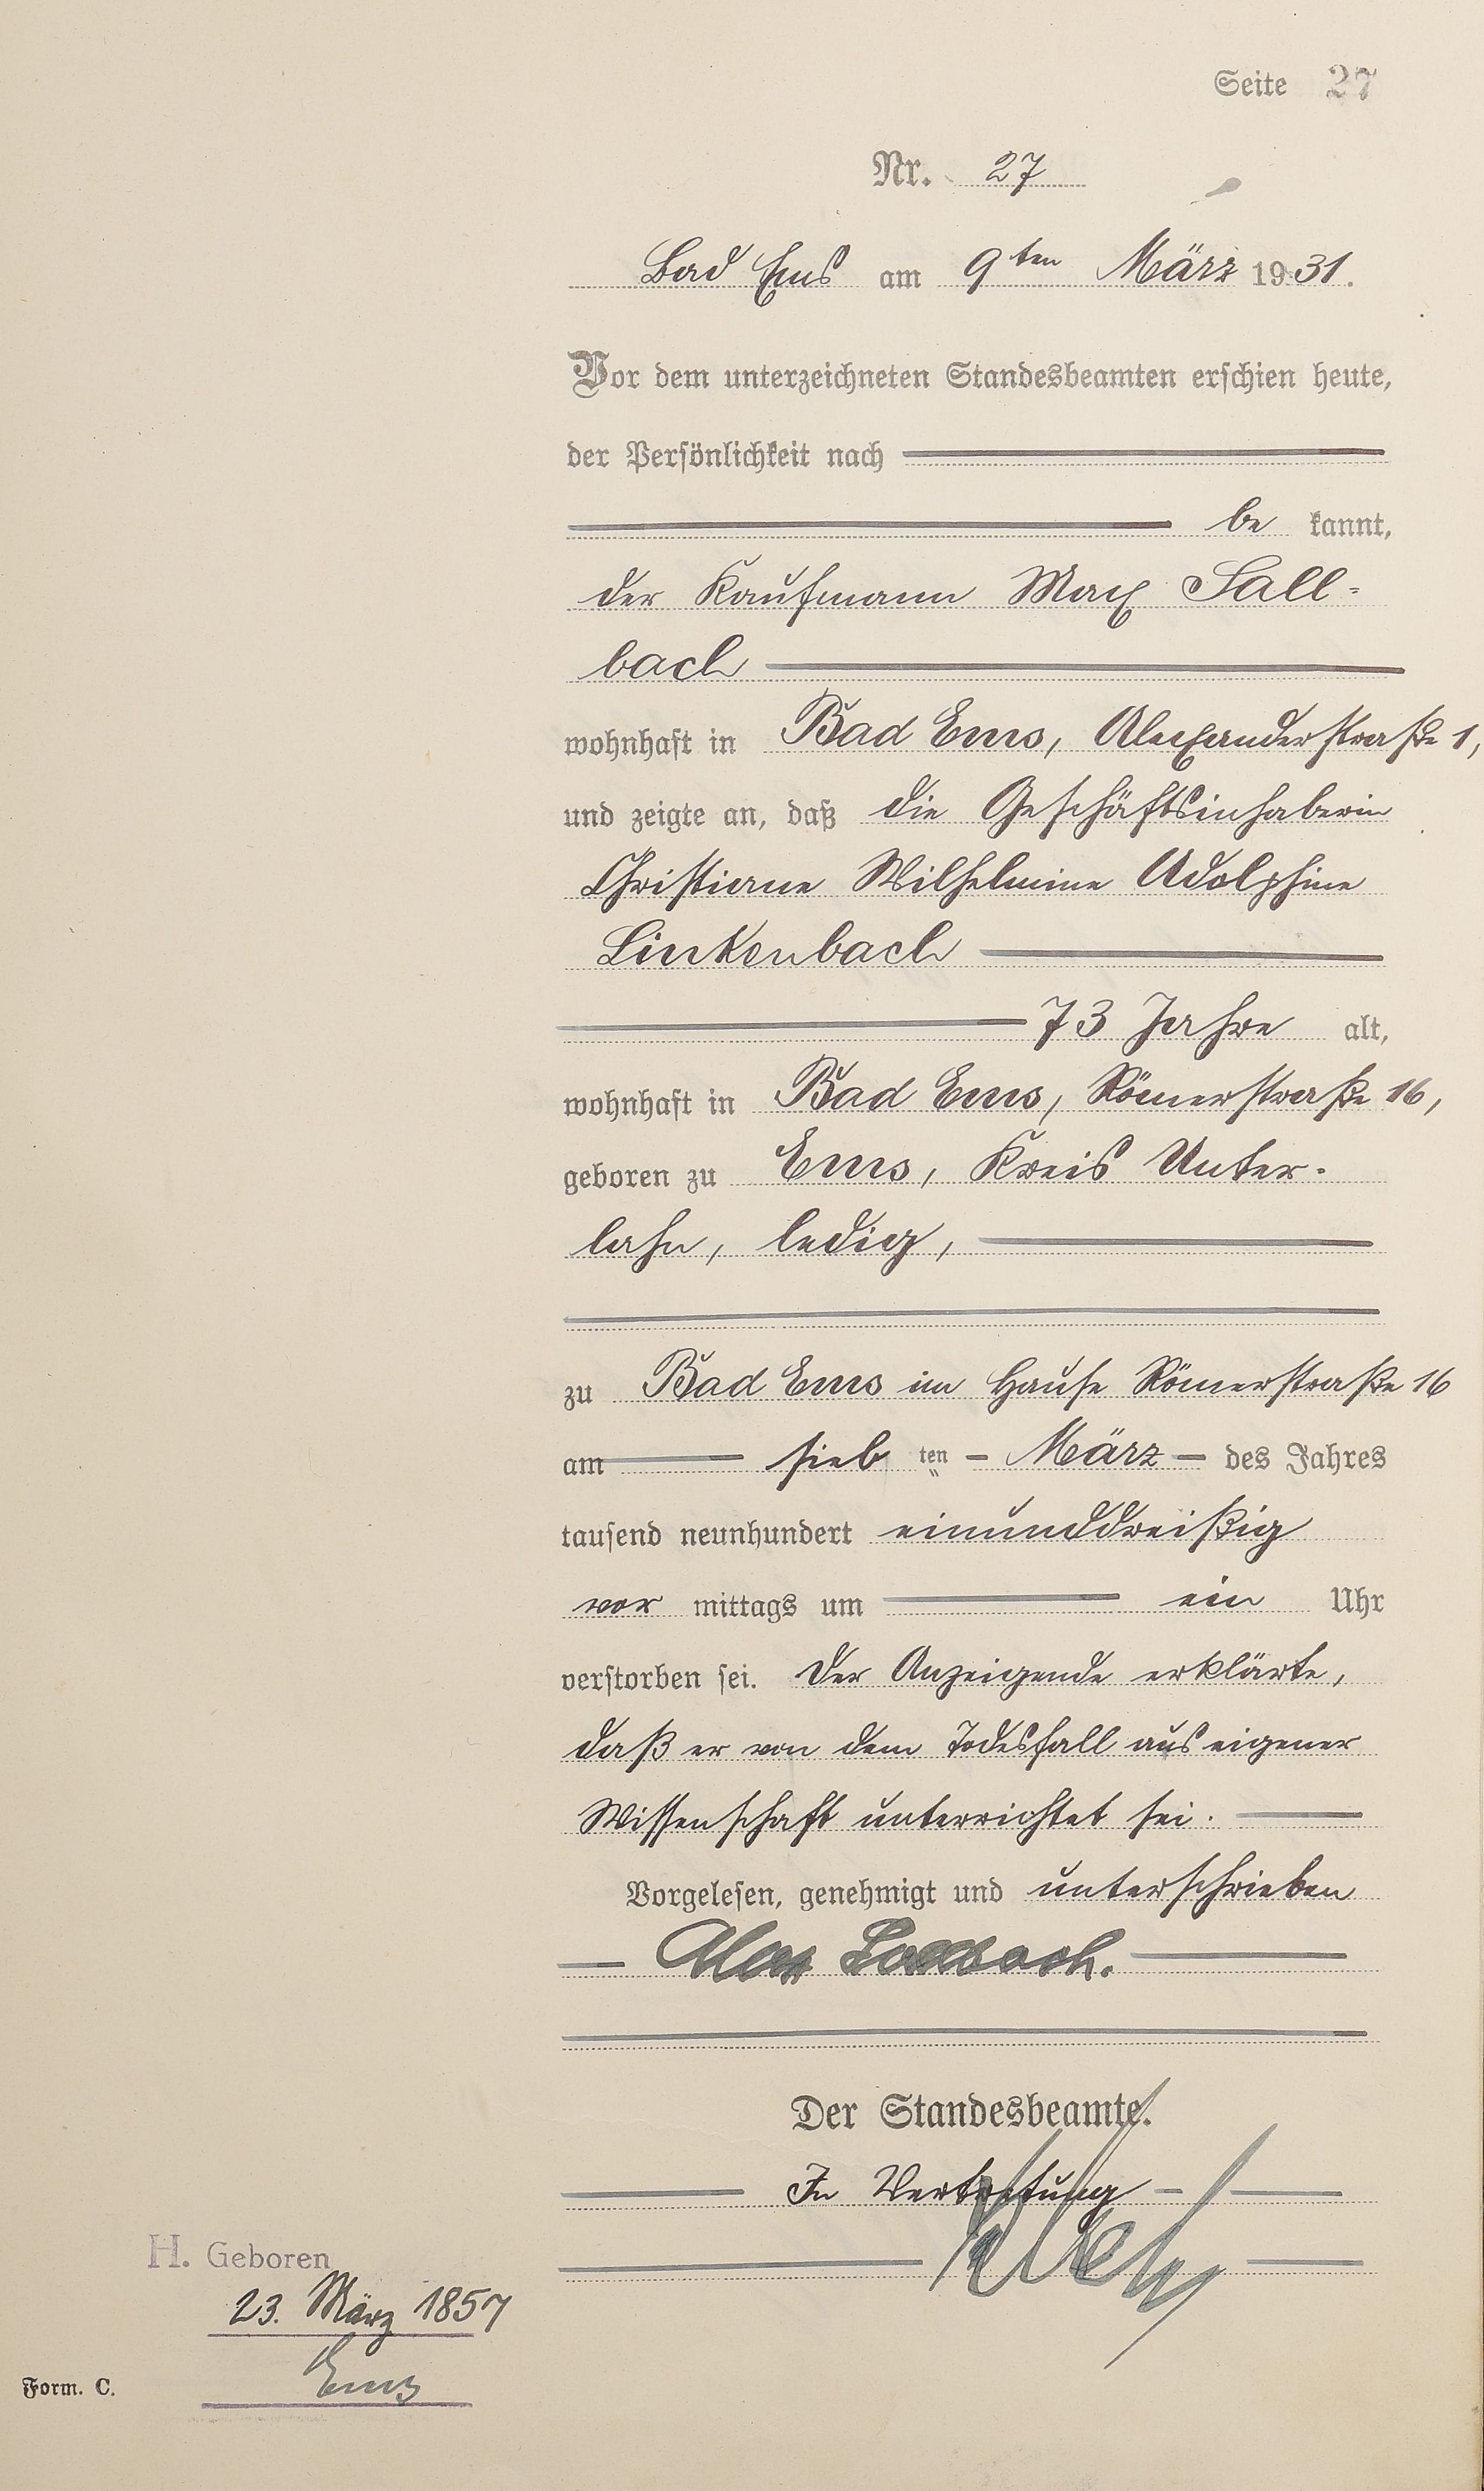 Seite 27
Nr. 27
Bad Ems am 9ten März 1931.
Vor dem unterzeichneten Standesbeamten erschien heute,
der Persönlichkeit nach
be kannt,
der Kaufmann Max Sall-
bach
wohnhaft in Bad Ems, Alexanderstraße 1,
und zeigte an, daß die Geschäftsinhaberin
Christiane Wilhelmine Adolphine
Linkenbach
73 Jahre alt,
wohnhaft in Bad Ems, Römerstraße 16,
geboren zu Ems, Kreis Unter-
lahn, ledig,
zu Bad Ems im Hause Römerstraße 16
am sieb ten März des Jahres
tausend neunhundert einunddreißig
vor mittags um ein Uhr
verstorben sei. Der Anzeigende erklärte,
daß er von dem Todesfall aus eigener
Wissenschaft unterrichtet sei.
Vorgelesen, genehmigt und unterschrieben
Max Sallbach.
Der Standesbeamte.
In Vertretung
H. Geboren
23. März 1857
Ems
Form. C.